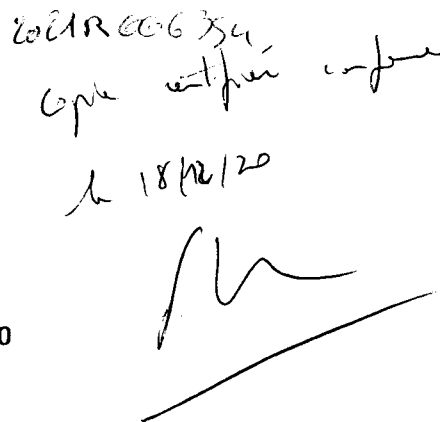 2021R006394
Copie certifiée conforme
le 18/12/20
0